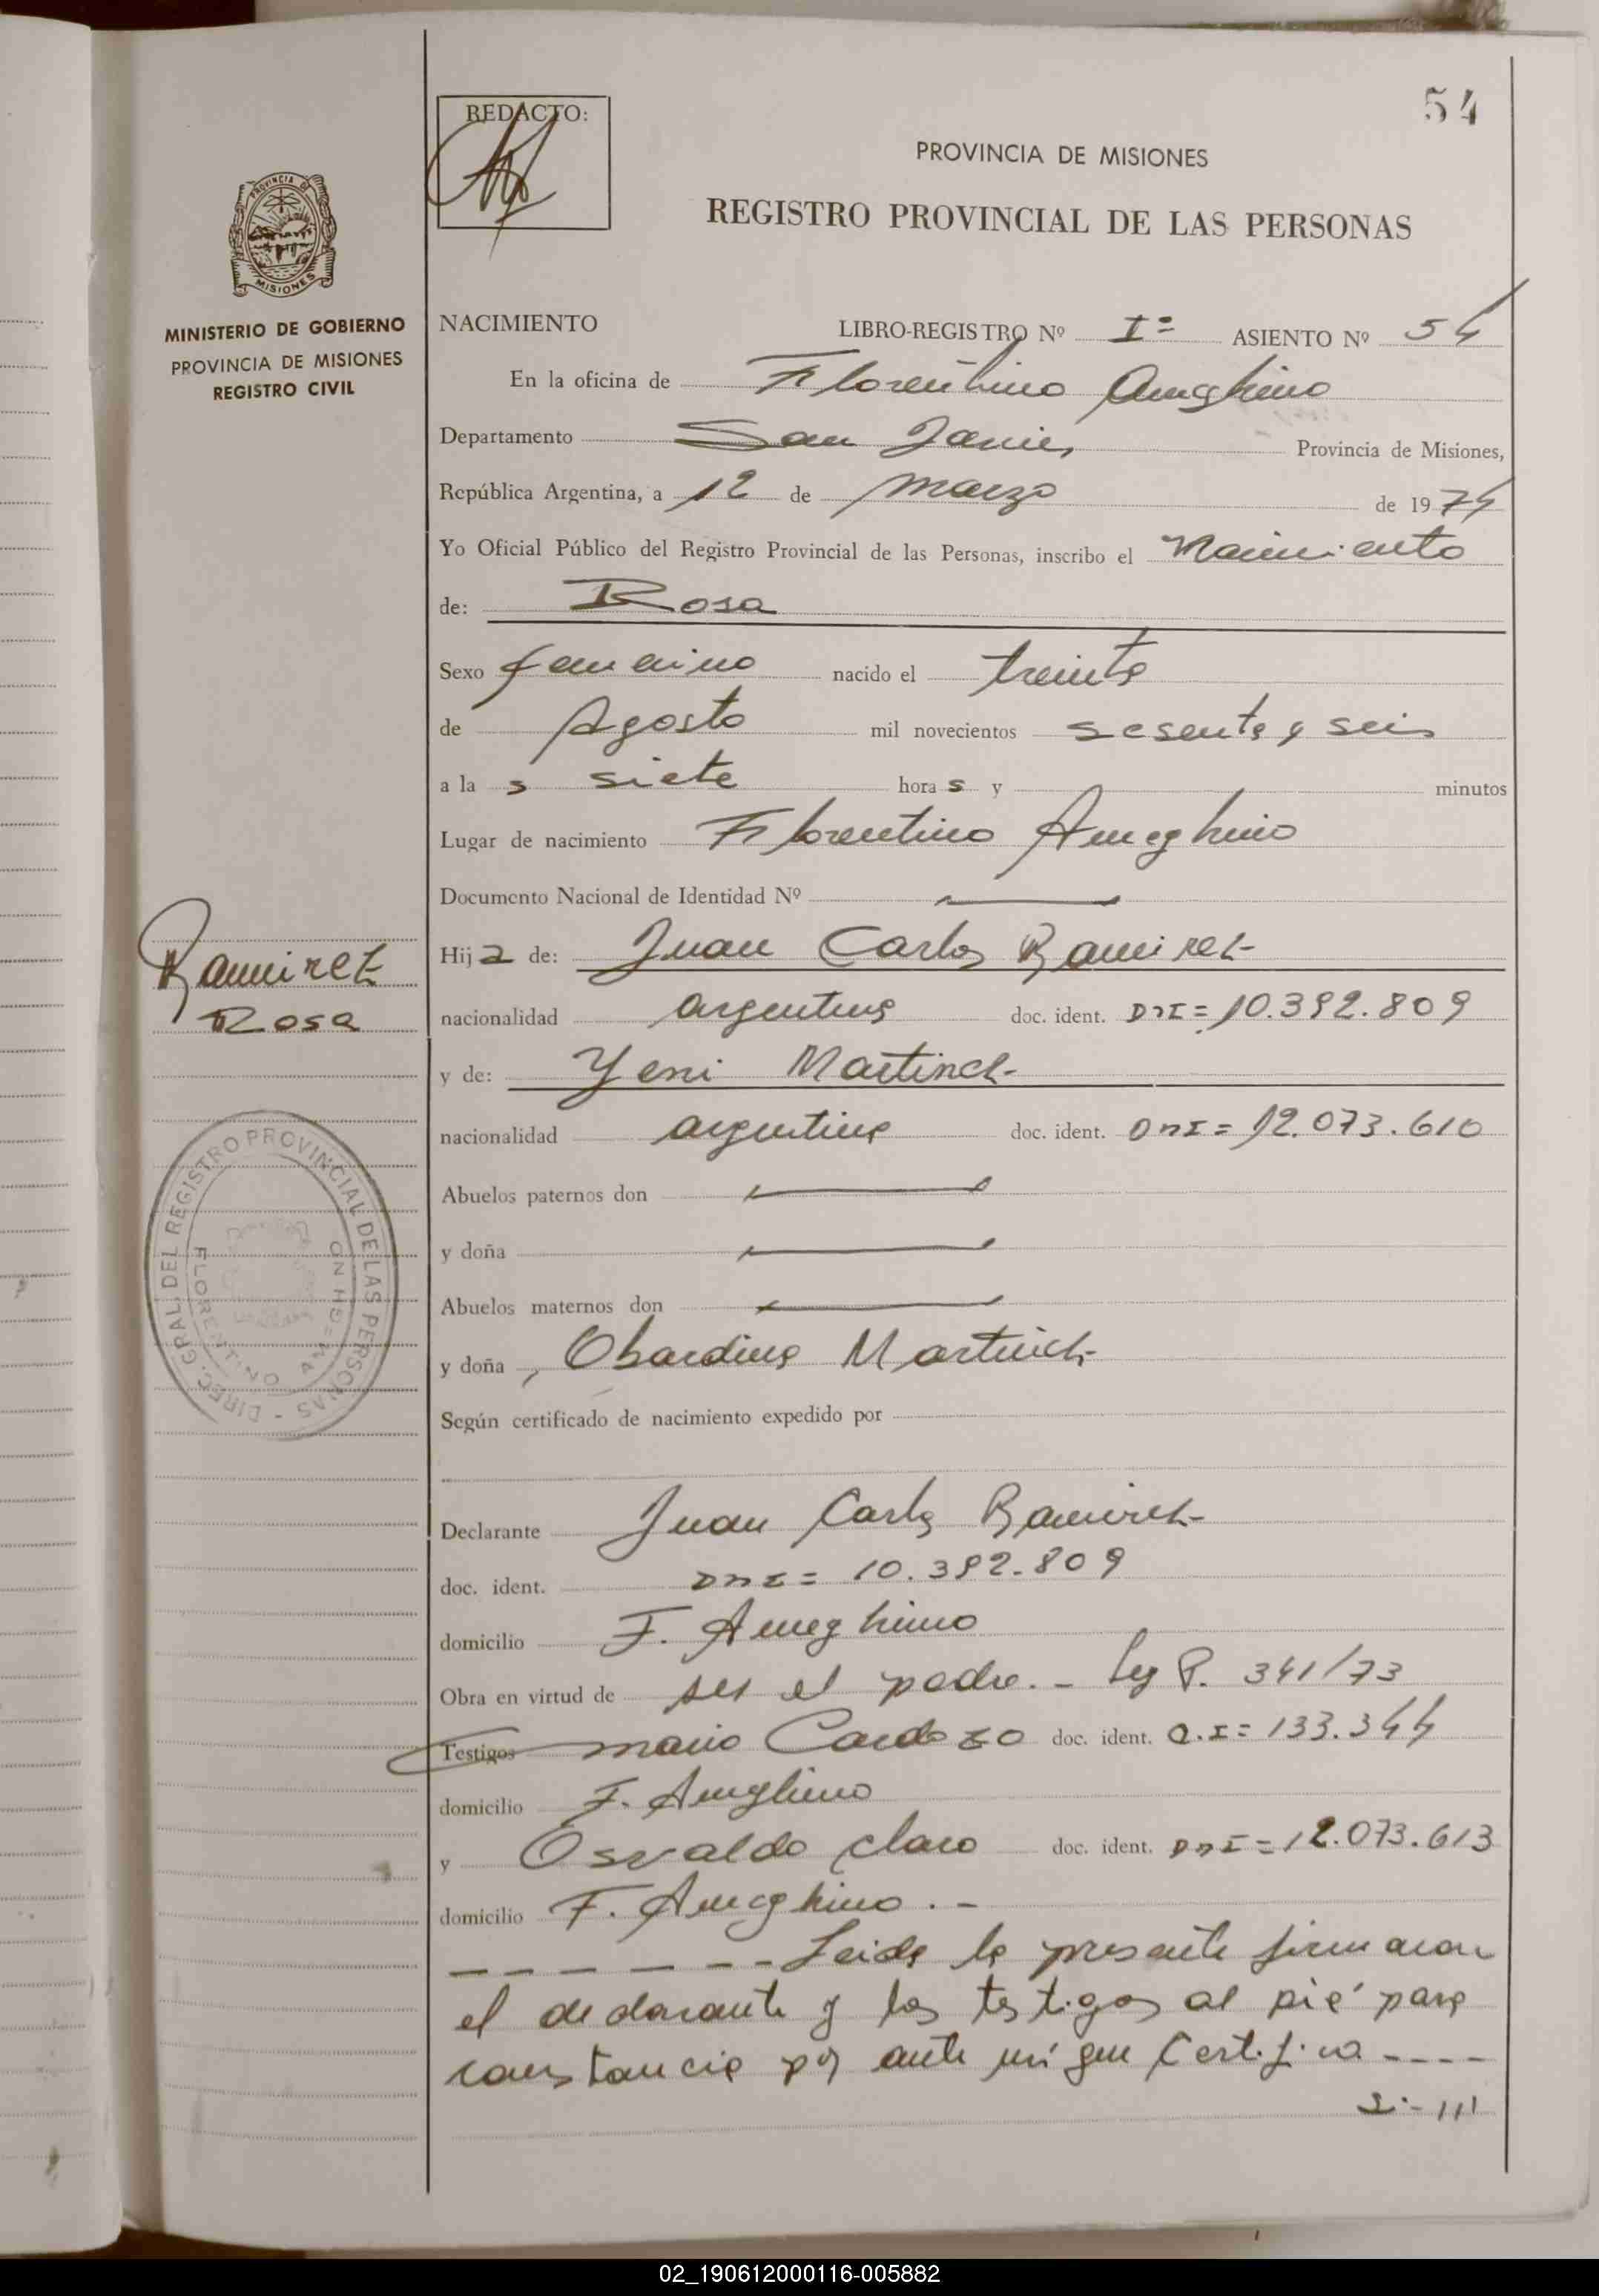 54
REDACTO:
PROVINCIA DE MISIONES
REGISTRO PROVINCIAL DE LAS PERSONAS
PROVINCIA DE
MISIONES
MINISTERIO DE GOBIERNO
PROVINCIA DE MISIONES
REGISTRO CIVIL
NACIMIENTO LIBRO-REGISTRO Nº Iº ASIENTO Nº 54
En la oficina de Florentino Ameghino
Departamento San Javier Provincia de Misiones,
República Argentina, a 12 de marzo de 1974
Yo Oficial Público del Registro Provincial de las Personas, inscribo el Nacimiento
de: Rosa
Sexo femenino nacido el treinta
de Agosto mil novecientos sesenta y seis
a la s siete hora s y minutos
Lugar de nacimiento Florentino Ameghino
Documento Nacional de Identidad Nº
Hij a de: Juan Carlos Ramirez
Ramirez
Rosa
nacionalidad argentina doc. ident. DNI= 10.392.809
y de: Yeni Martinez
nacionalidad argentina doc. ident. DNI= 12.073.610
Abuelos paternos don
y doña
Abuelos maternos don
y doña Martinez
DIREC. GRAL. DEL REGISTRO PROVINCIAL DE LAS PERSONAS -
FLORENTINO AMEGHINO
Según certificado de nacimiento expedido por
Declarante Juan Carlos Ramirez
doc. ident. DNI= 10.392.809
domicilio F. Ameghino
Obra en virtud de ser el padre. - Ley P. 341/73
Testigos mario Cardozo doc. ident. C.I= 133.344
domicilio F. Ameghino
y Osvaldo Claro doc. ident. DNI= 12.073.613
domicilio F. Ameghino . -
- - - - - - - Leida la presente firmaron
el declarante y los testigos al pié para
constancia por ante mi que Certifico - - - -
02_190612000116-005882